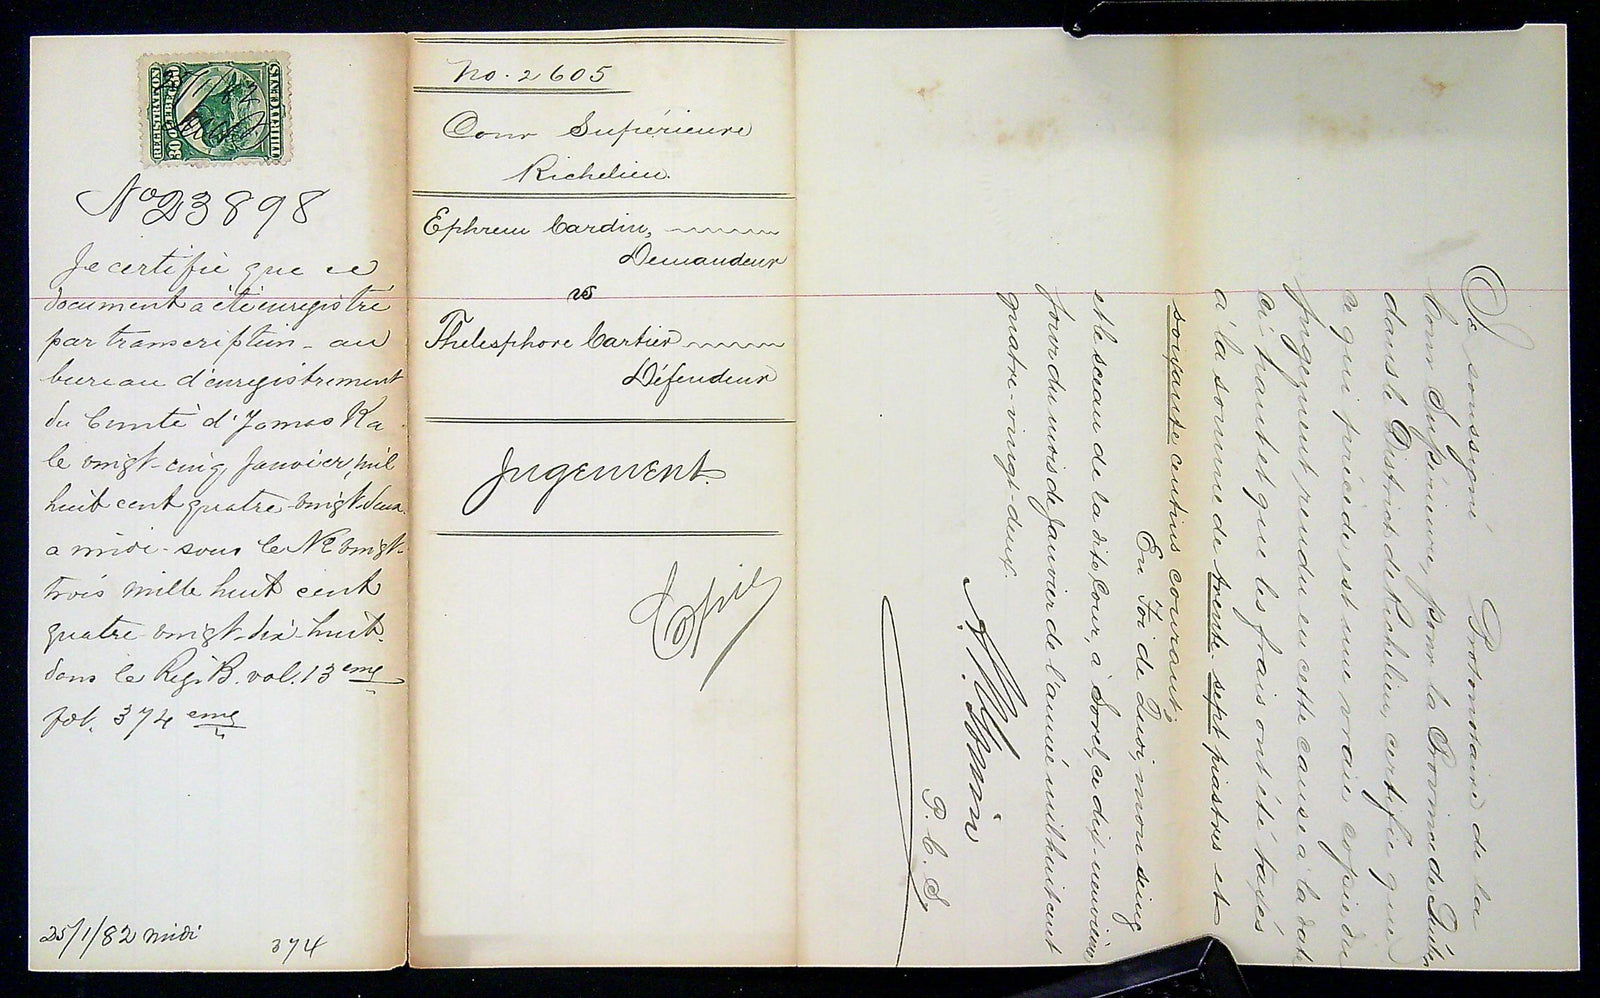 REGISTRATION
30 QUEBEC 30
No 23898
Je certifie que ce
document a été enregistré
par transcription - au
bureau d'enregistrement
du Comté d'Yamaska
le vingt-cinq Janvier, mil
huit cent quatre-vingt-deux
a midi - sous le No vingt-
trois mille huit cent
quatre-vingt-dix-huit.
dans le Reg. B. vol. 13eme
fol. 374 eme
25/1/82 midi
374
No. 2605
Cour Supérieure
Richelieu.
Ephrem Cardin,
Demandeur
vs
Thelesphore Cartier
Défendeur
Jugement.
Copie
Je soussigné Protonotaire de la
Cour Supérieure, pour la Province de Québec
dans le District de Richelieu, certifie que
ce qui précède, est une vraie copie du
Jugement rendu en cette cause à la date
ci-haut et que les frais ont été taxés
à la somme de trente-sept piastres et
soixante centins courant;
En Foi de Quoi, mon seing
et le sceau de la dite Cour, à Sorel, ce dix-neuvième
jour du mois de Janvier de l'année mil huit cent
quatre-vingt-deux.
P. C. S.